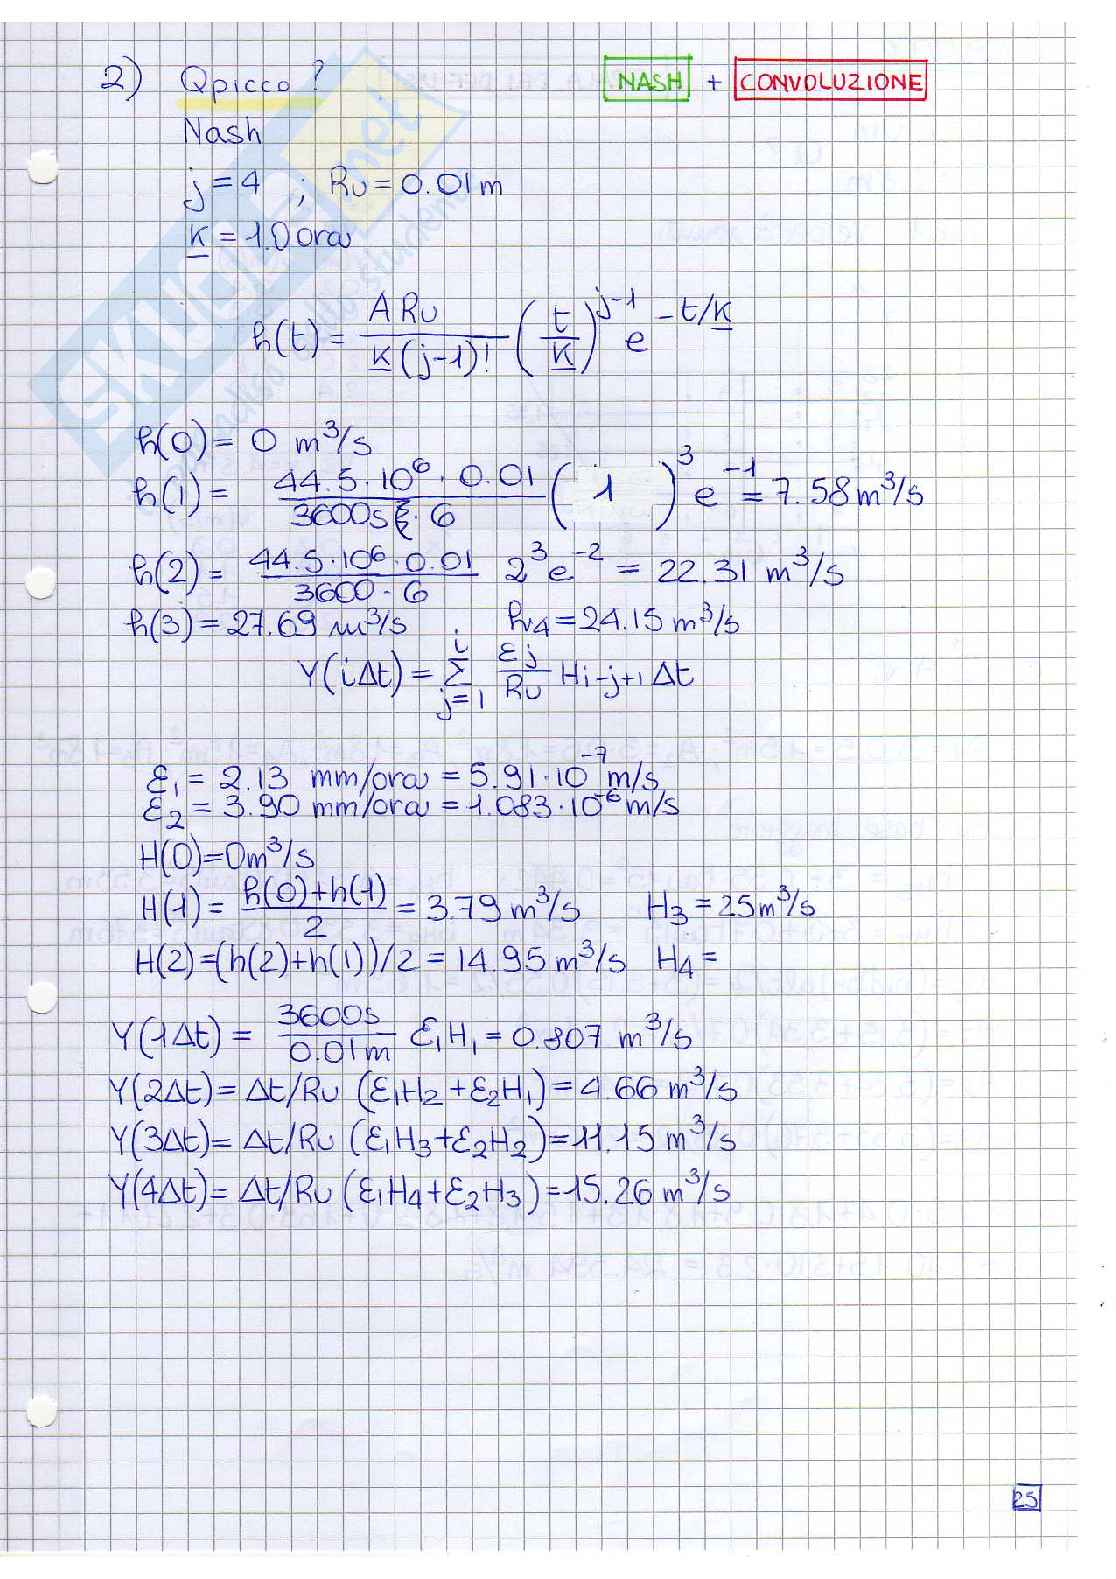 2) Qpicco? NASH + CONVOLUZIONE
Nash
j=4 ; Ru=0.01m
k=1.0 ora
h(t) = A Ru / k(j-1)! (t/k)^j-1 e^-t/k
h(0)= 0 m³/s
h(1) = 44.5·10⁶·0.01 / 3600s · 6 (1)³ e⁻¹ = 7.58 m³/s
h(2) = 44.5·10⁶·0.01 / 3600·6 2³e⁻² = 22.31 m³/s
h(3)=27.69 m³/s ; h4=24.15 m³/s
Y(iΔt) = Σ j=1 i Ɛj/Ru Hi-j+1 Δt
Ɛ1 = 2.13 mm/ora = 5.91·10⁻⁷ m/s
Ɛ2 = 3.90 mm/ora = 1.083·10⁻⁶ m/s
H(0)=0m³/s
H(1) = h(0)+h(1) / 2 = 3.79 m³/s H3 = 25m³/s
H(2)=(h(2)+h(1))/2 = 14.95 m³/s H4 =
Y(1Δt) = 3600s / 0.01m Ɛ1H1 = 0.807 m³/s
Y(2Δt)= Δt/Ru (Ɛ1H2+Ɛ2H1)=4.66 m³/s
Y(3Δt)= Δt/Ru (Ɛ1H3+Ɛ2H2)=11.15 m³/s
Y(4Δt)= Δt/Ru (Ɛ1H4+Ɛ2H3)=15.26 m³/s
25
SKUOLA.net